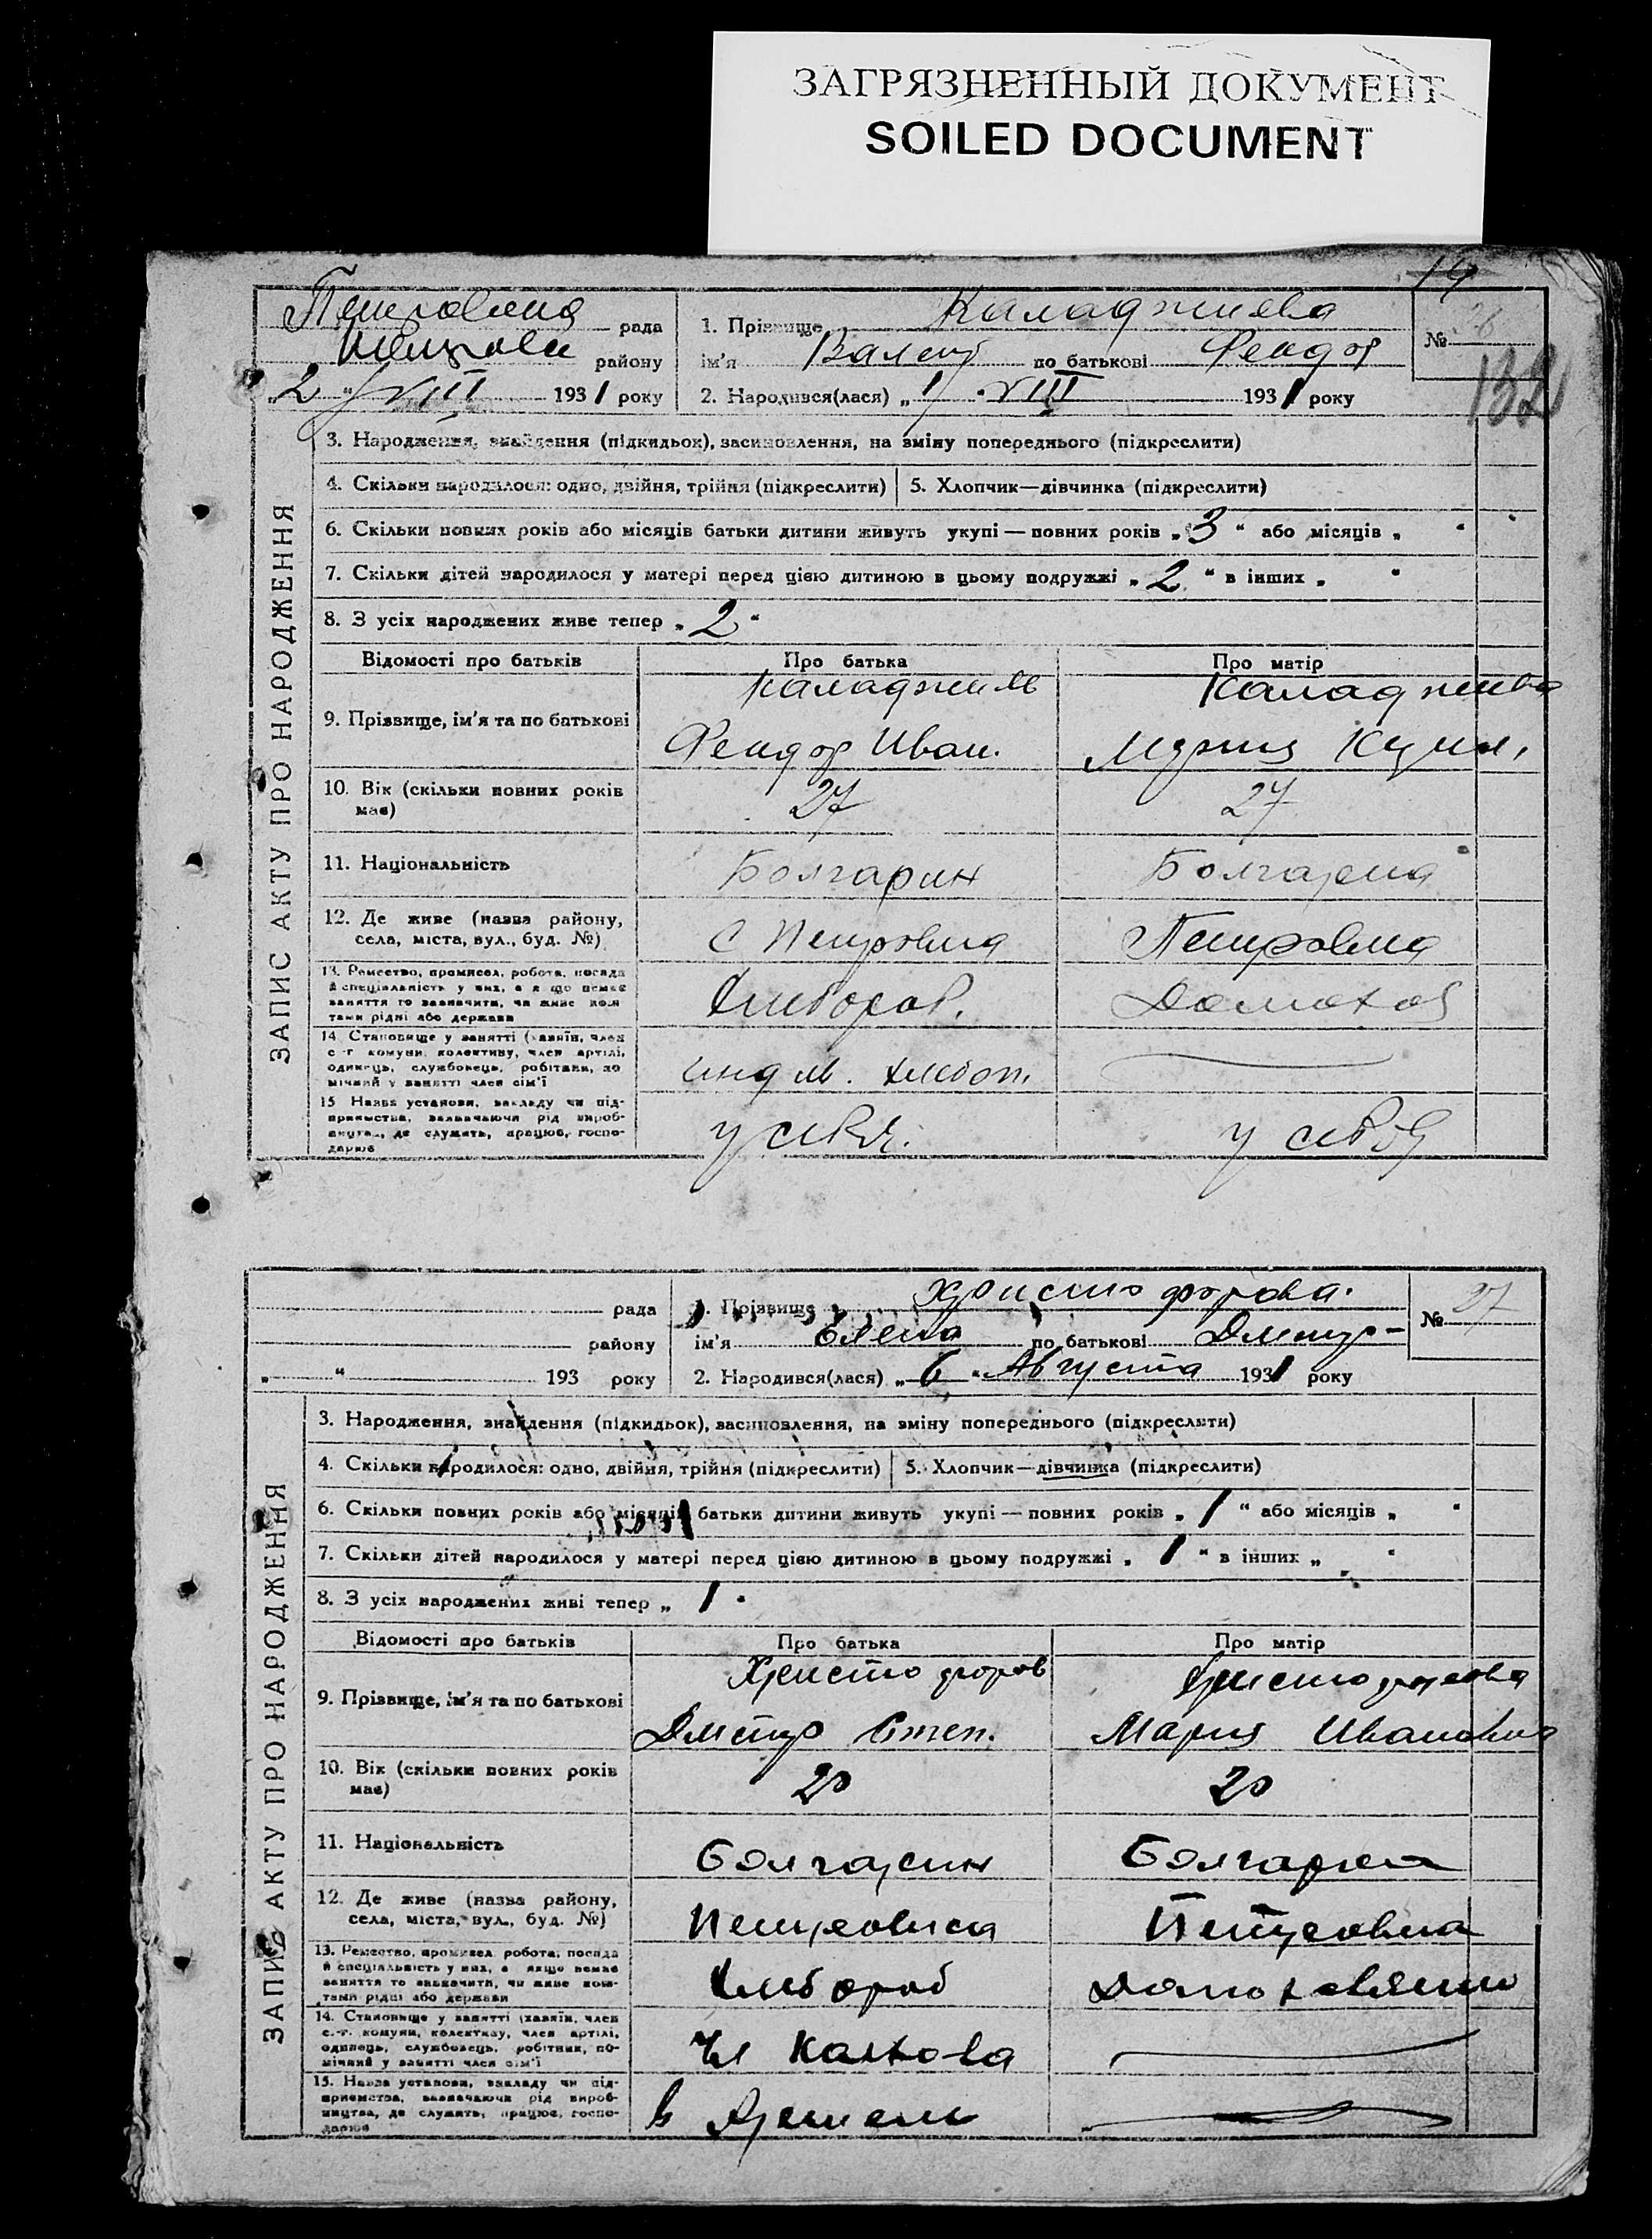 ЗАГРЯЗНЕННЫЙ ДОКУМЕНТ
SOILED DOCUMENT
19
132
рада
району
„2“ VIII 1931 року
1. Прізвище
ім'я по батькові Феодор
2. Народився(лася) „1“ VIII 1931 року
№ 26
ЗАПИС АКТУ ПРО НАРОДЖЕННЯ
3. Народження, знайдення (підкидьок), засиновлення, на зміну попереднього (підкреслити)
4. Скільки народилося: одно, двійня, трійня (підкреслити) 5. Хлопчик—дівчинка (підкреслити)
6. Скільки повних років або місяців батьки дитини живуть укупі — повних років „3“ або місяців „ “
7. Скільки дітей народилося у матері перед цією дитиною в цьому подружжі „2“ в інших „ “
8. З усіх народжених живе тепер „2“
Відомості про батьків Про батька Про матір
9. Прізвище, ім'я та по батькові
Феодор Иван. Мария
10. Вік (скільки повних років має) 27 27
11. Національність Болгарин Болгарка
12. Де живе (назва району, села, міста, вул., буд. №) с Петровка Петровка
13. Ремество, промисел, робота, посада й спеціальність у них, а якщо немає заняття то зазначити, чи живе коштами рідні або держави Хлебороб. Домохоз
14. Становище у занятті (хазяїн, член с.-г. комуни, колективу, член артілі, одинець, службовець, робітник, помічний у занятті член сім'ї
15. Назва установи, закладу чи підприємства, зазначаючи рід виробництва, де служить, працює, господарює у себя. у себя
рада
району
„ “ 193 року
1. Прізвище Христофорова.
ім'я Елена по батькові Дмитр-
2. Народився(лася) „6“ Августа 1931 року
№ 27
ЗАПИС АКТУ ПРО НАРОДЖЕННЯ
3. Народження, знайдення (підкидьок), засиновлення, на зміну попереднього (підкреслити)
4. Скільки народилося: одно, двійня, трійня (підкреслити) 5. Хлопчик—дівчинка (підкреслити)
6. Скільки повних років або місяців батьки дитини живуть укупі — повних років „1“ або місяців „ “
7. Скільки дітей народилося у матері перед цією дитиною в цьому подружжі „1“ в інших „ “
8. З усіх народжених живі тепер „1“
Відомості про батьків Про батька Про матір
9. Прізвище, ім'я та по батькові Христофоров Христофорова
Дмитр Степ. Мария Ивановна
10. Вік (скільки повних років має) 20 20
11. Національність болгарин Болгарка
12. Де живе (назва району, села, міста, вул., буд. №) Петровка Петровка
13. Ремество, промисел, робота, посада й спеціальність у них, а якщо немає заняття то зазначити, чи живе коштами рідні або держави Хлебороб
14. Становище у занятті (хазяїн, член с.-г. комуни, колективу, член артілі, одинець, службовець, робітник, помічний у занятті член сім'ї Чл Колхоза
15. Назва установи, закладу чи підприємства, зазначаючи рід виробництва, де служить, працює, господарює в Артели